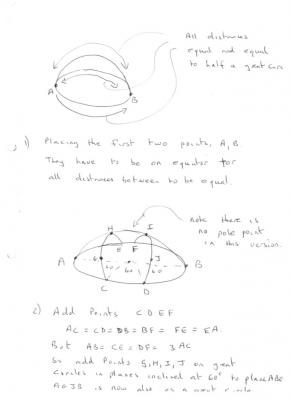 All distances
equal and equal
to half a great circ
A
B
1) Placing the first two points, A, B.
They have to be on equator for
all distances between to be equal.
note there is
no pole point
in this version.
H I
E F
A G J B
60 60 60
C D
2) Add Points C D E F
AC = CD = DB = BF = FE = EA.
But AB = CE = DF = 3 AC
So add Points G, H, I, J on great
Circles in planes inclined at 60° to plane ABC
AGJB is now also on a great circle